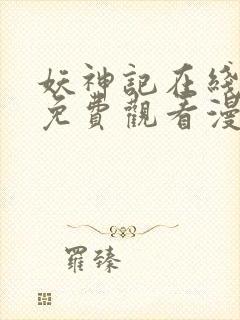 妖神記在綫
免費觀看漫
羅臻